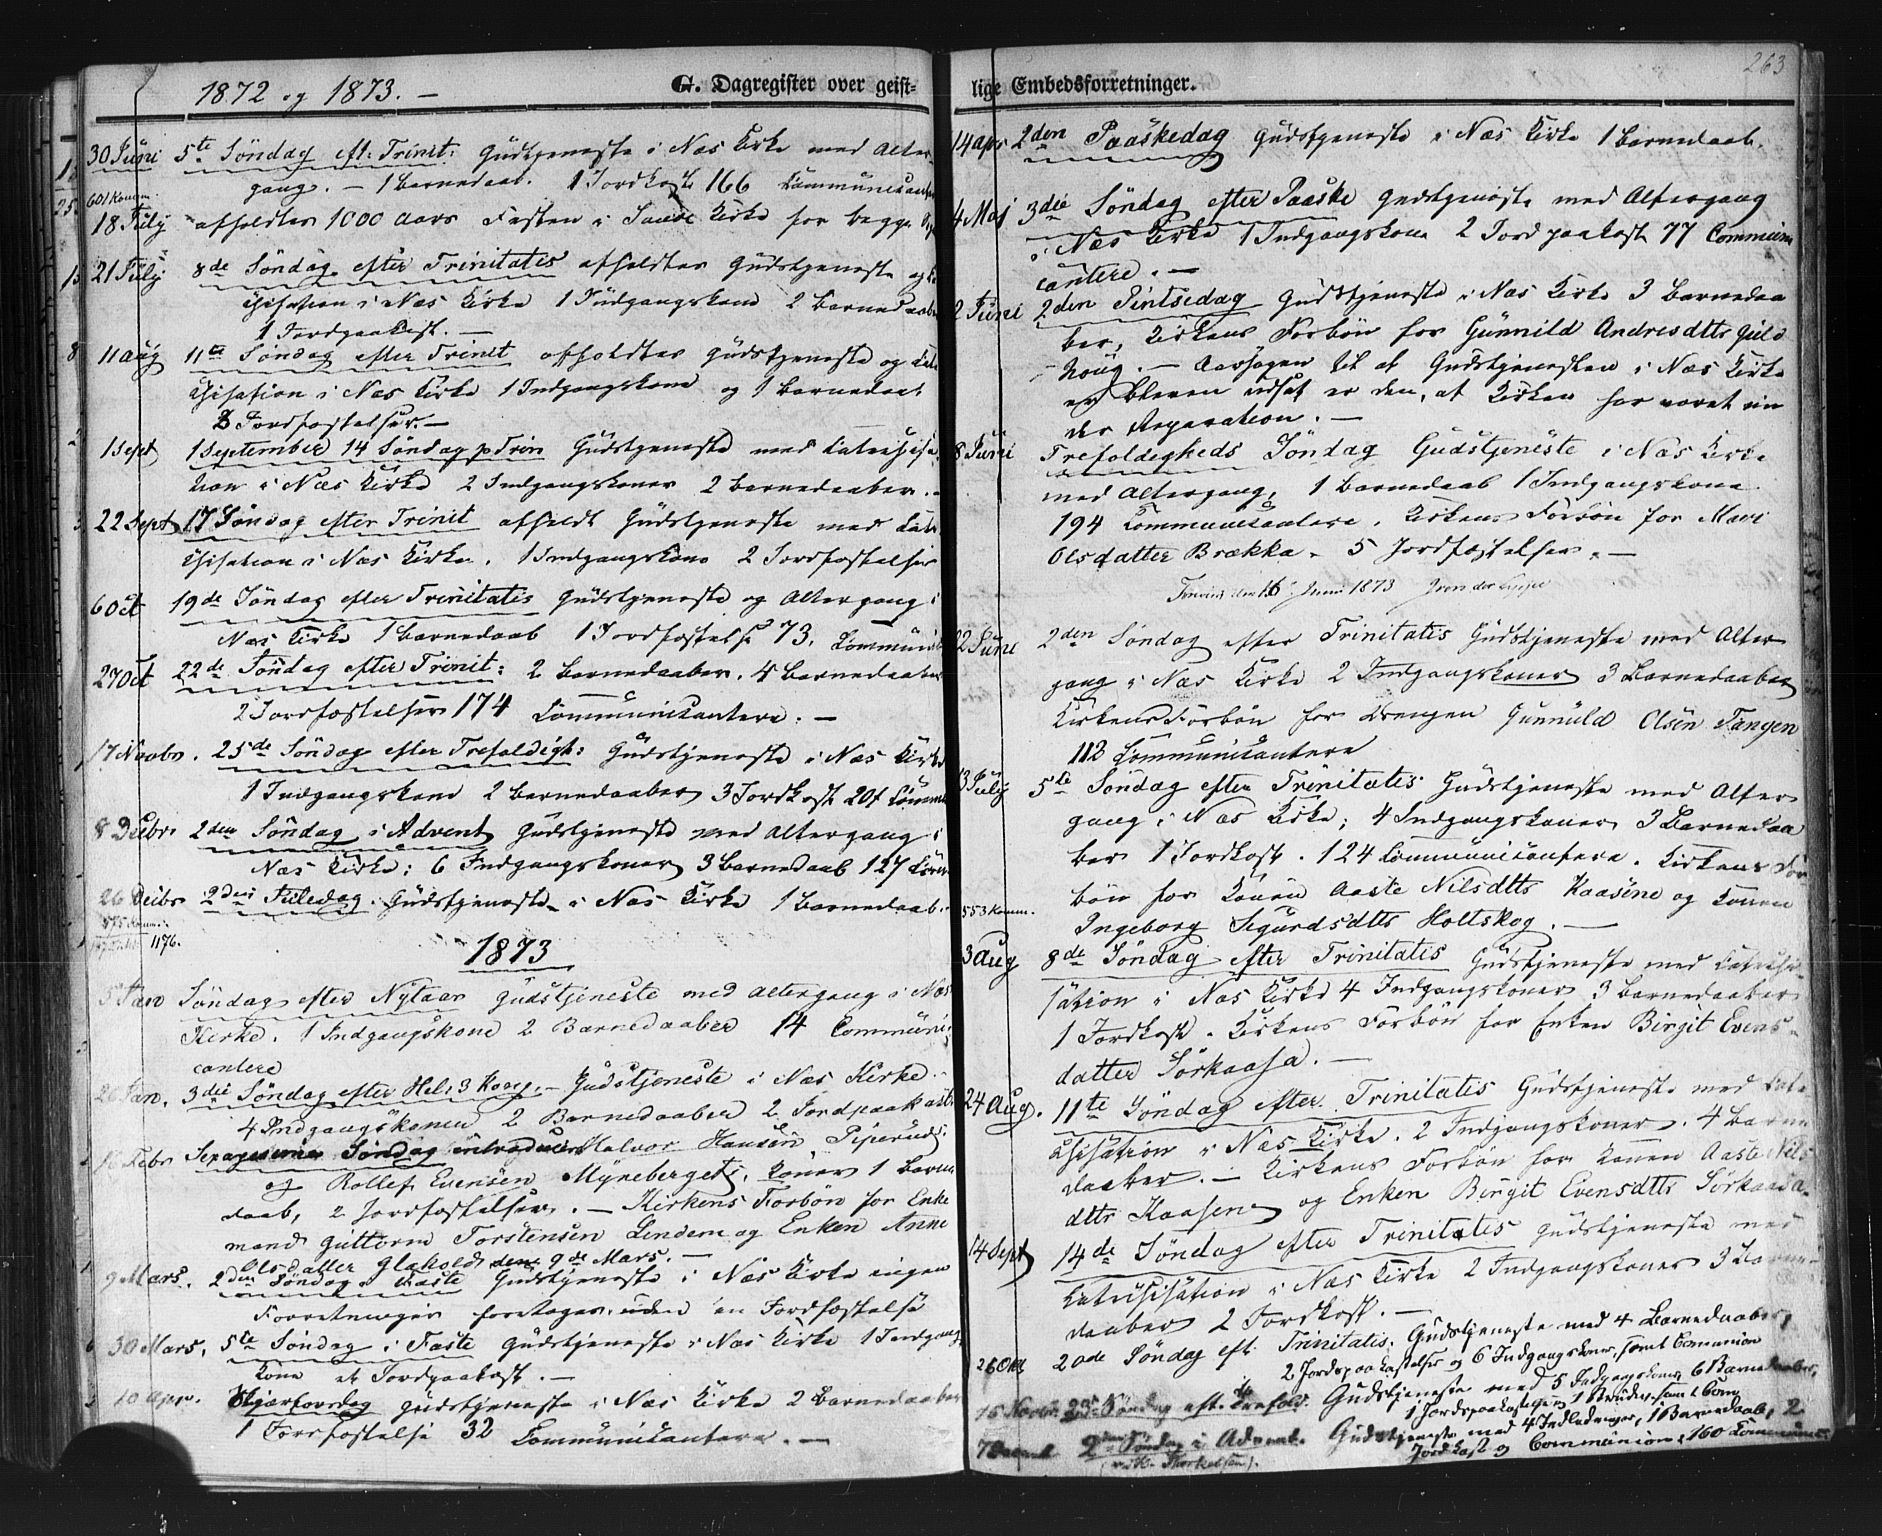 1872 og 1873. –
G. Dagregister over geist-
30 Juni 5te Söndag eft. Trinit: Gudstjeneste i Næs Kirke med Alter-
gang. – 1 Barnedaab. 1 Jordkast 166 Communicanter
601 Komm.
18 July afholdtes 1000 Aars Festen i Saude Kirke for begge
21 July 8de Söndag efter Trinitatis afholdtes Gudstjeneste og Ca
chisation i Næs Kirke 1 Indgangskone 2 Barnedaaber
1 Jordpaakast. –
11 Aug 11te Söndag efter Trinit afholdtes Gudstjeneste og Cate
chisation i Næs Kirke 1 Indgangskone og 1 Barnedaab
3 Jordfæstelser. –
1 Sept 1 September 14 Söndag p Trin Gudstjeneste med Catechisa
tion i Næs Kirke 2 Indgangskoner 2 Barnedaaber. –
22 Sept 17 Söndag efter Trinit afholdt Gudstjeneste med Cate
chisation i Næs Kirke. 1 Indgangskone 2 Jordfæstelser
6 Oct 19de Söndag efter Trinitatis Gudstjeneste og Altergang i
Næs Kirke 1 Barnedaab 1 Jordfæstelse 73. Communic
27 Oct 22de Söndag efter Trinit: 2 Barnedaaber. 4 Barnedaaber
2 Jordfæstelser 174 Communicantere. –
17 Novbr. 25de Söndag efter Trefoldigh: Gudstjeneste i Næs Kirke
1 Indgangskone 2 Barnedaaber 3 Jordkast 201 Commu
8 Decbr 2den Söndag i Advent Gudstjeneste med Altergang i
Næs Kirke: 6 Indgangskoner 3 Barnedaab 127 Comm
26 Decbr 2den Juledag. Gudstjeneste i Næs Kirke 1 Barnedaab.
575 Komm:
1176.
1873
5 Jan Söndag efter Nytaar Gudstjeneste med Altergang i Næs
Kirke. 1 Indgangskone 2 Barnedaaber 14 Communi-
cantere
26 Jan. 3die Söndag efter Hel: 3 Kong. – Gudstjeneste i Næs Kirke –
4 Indgangskoner 2 Barnedaaber 2 Jordpaakast
16 Febr Sexagesima Söndag Halvor Hansen Piperud
og Rollef Evensen Myneberget. Koner 1 Barne
daab, 2 Jordfæstelser. – Kirkens Forbön for Enke
mand Guttorm Torstensen Lindem og Enken Anne
Olsdatter Glaholt den 9de Mars. –
9 Mars. 2den Söndag i Faste Gudstjeneste i Næs Kirke ingen
Forretninger foretoges uden en Jordfæstelse
30 Mars. 5te Söndag i Faste Gudstjeneste i Næs Kirke 1 Indgangs
kone et Jordpaakast. –
10 Apr. Skjærtorsdag Gudstjeneste i Næs Kirke 2 Barnedaaber
1 Jordfæstelse 32 Communicantere. –
263
lige Embedsforretninger.
14 Apr 2den Paaskedag Gudstjeneste i Næs Kirke 1 Barnedaab.
4 Maj 3die Söndag efter Paaske Gudstjeneste med Altergang
i Næs Kirke 1 Indgangskone 2 Jordpaakast 77 Communi
cantere. –
2 Juni 2den Pintsedag Gudstjeneste i Næs Kirke 3 Barnedaa
ber, Kirkens Forbön for Gunnild Andresdtts Guld
houg. – Aarsagen til at Gudstjenesten i Næs Kirke
er bleven udsat er den, at Kirken har været un
der Reparation. –
8 Juni Trefoldigheds Söndag Gudstjeneste i Næs Kirke
med Altergang, 1 Barnedaab 1 Indgangskone
194 Communicantere. Kirkens Forbön for Mari
Olsdatter Brækka. 5 Jordfæstelser. –
16 Juni 1873
22 Juni 2den Söndag efter Trinitatis Gudstjeneste med Alter
gang i Næs Kirke 2 Indgangskoner 3 Barnedaaber
Kirkens Forbön for Drengen Gunnuld Olsen Tangen
112 Communicantere
13 July 5te Söndag efter Trinitatis Gudstjeneste med Alter
gang i Næs Kirke; 4 Indgangskoner, 3 Barnedaa
ber 1 Jordkast. 124 Communicantere. Kirkens For
bön for Konen Aaste Nilsdtts Kaasene og Konen
553 Komm.
Ingeborg Sigurdsdtts Holtskog. –
3 Aug 8de Söndag efter Trinitatis Gudstjeneste med Catechi
sation i Næs Kirke 4 Indgangskoner 3 Barnedaaber
1 Jordkast. Kirkens Forbön for Enken Birgit Evens-
datter Sörkaasa. –
24 Aug. 11te Söndag efter Trinitatis Gudstjeneste med Cate
chisation i Næs Kirke. 2 Indgangskoner. 4 Barne
daaber. – Kirkens Forbön for Konen Aaste Nils
dttr Kaasene og Enken Birgit Evensdttr Sörkaasa.
14 Sept 14de Söndag efter Trinitatis Gudstjeneste med
Catechisation i Næs Kirke 2 Indgangskoner 3 Barne-
daaber 2 Jordkast. –
26 Okt 20de Söndag eft. Trinitatis: Gudstjeneste med 4 Barnedaaber,
2 Jordspaakastelser og 6 Indgangskoner, samt Comunion
16 Novbr. 23de Söndag eft. Trefold. Gudstjeneste med 5 Indgangskoner 6 Barnedaaber,
1 Jordspaakastelse samt Com
7 Decemb 2den Söndag i Advent. Gudstjeneste med 4 Indledninger, 1 Barnedaab, 2
(ved K. Thorkelsen). Jordkast og Communion, 160 Commun